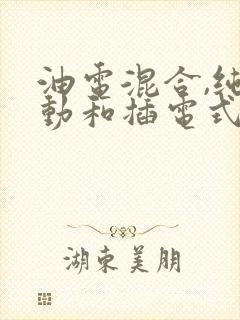 油電混合,純
動和插電式
湖東美朋